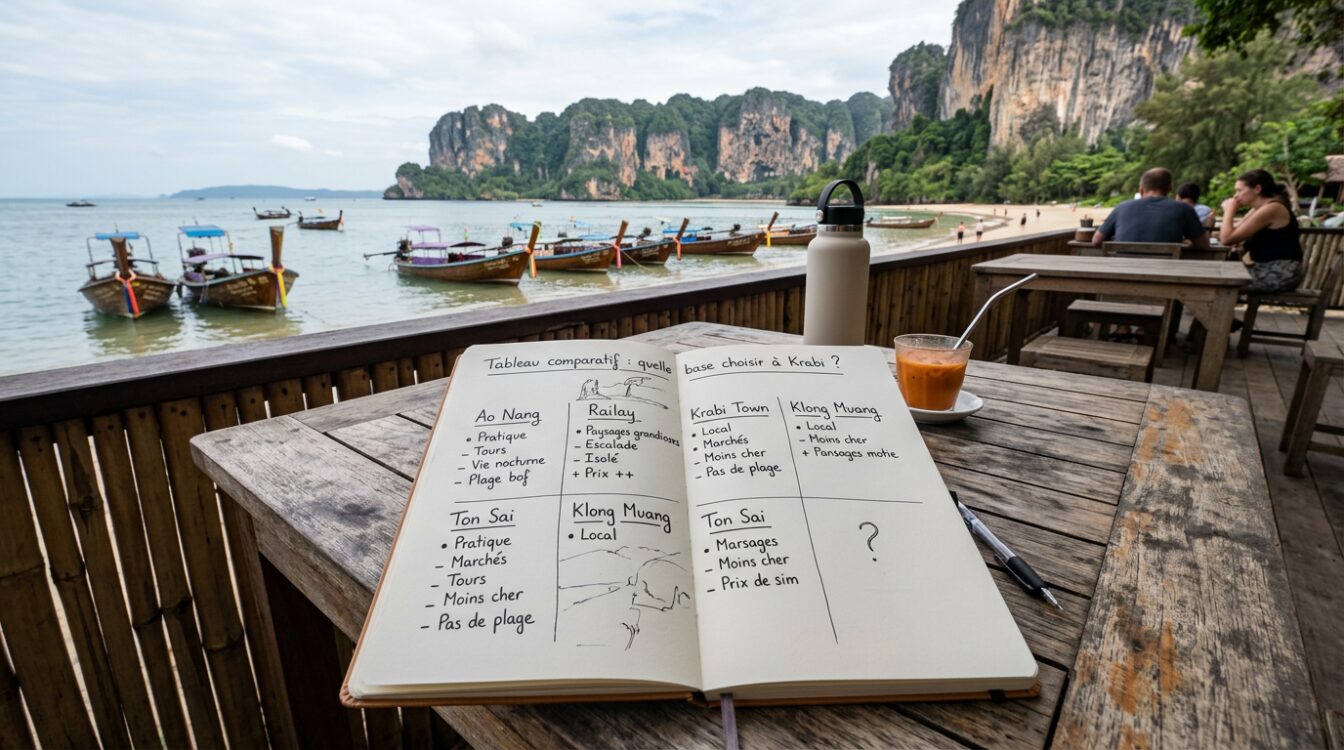 Tableau comparatif : quelle base choisir à Krabi ?
Ao Nang
• Pratique
– Tours
– Vie nocturne
– Plage bof
Railay
• Paysages grandioses
– Escalade
– Isolé
+ Prix ++
Krabi Town
• Local
• Marchés
• Moins cher
– Pas de plage
Klong Muang
• Local
– Moins cher
+ Pansages mohe
Ton Sai
• Pratique
– Marchés
– Tours
– Moins cher
– Pas de plage
Klong Muang
• Local
Ton Sai
• Marsages
– Moins cher
– Prix de sim
?